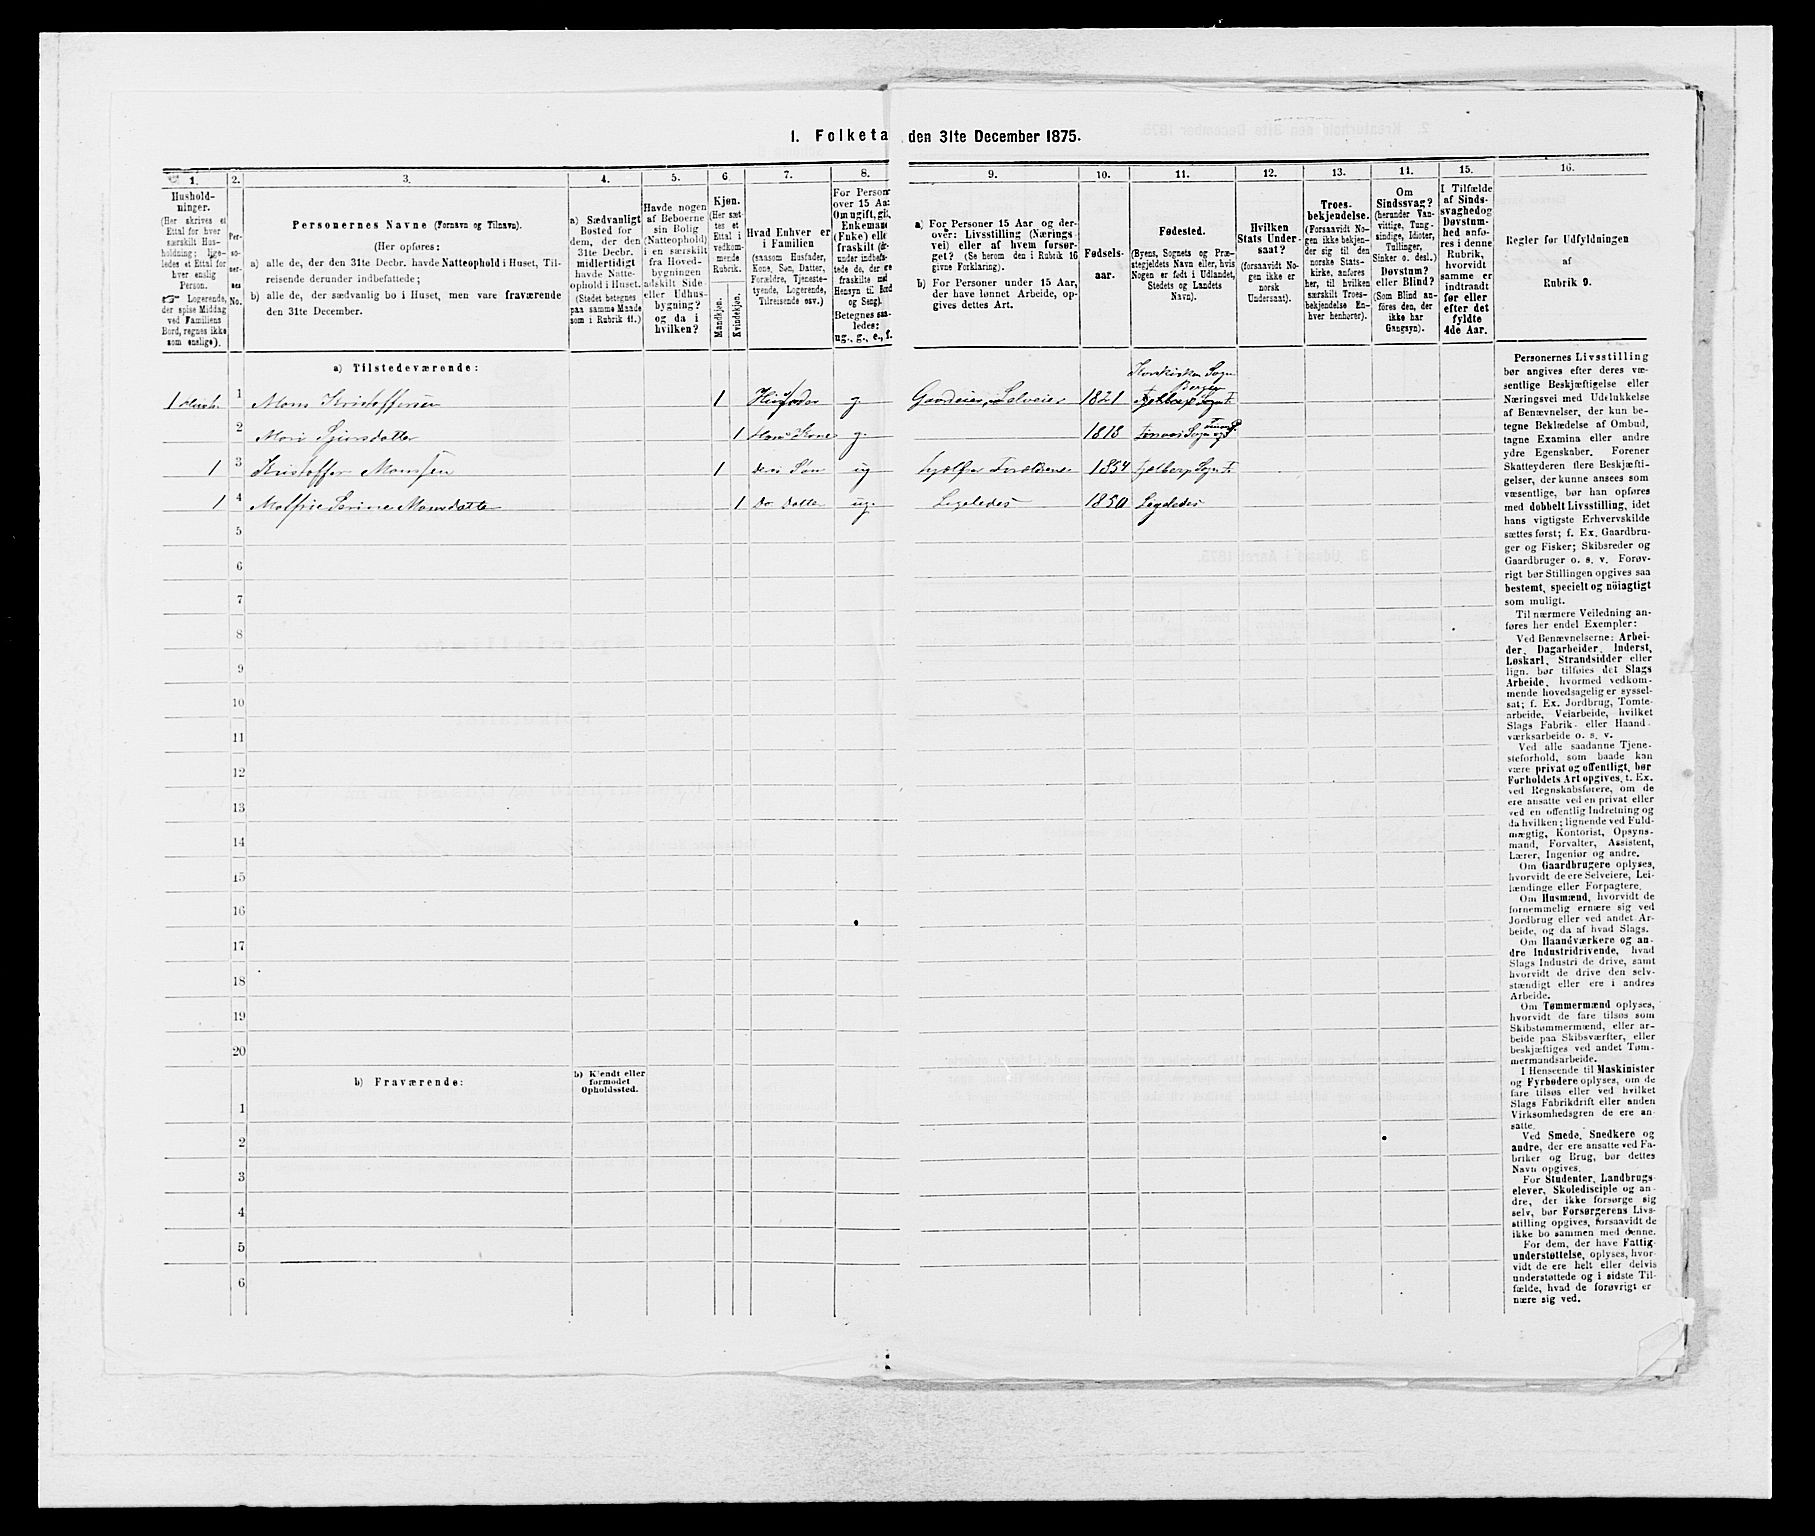 1. Folketa den 31te December 1875.
1. 2. 3. 4. 5. 6. 7. 8. 9. 10. 11. 12. 13. 11. 15. 16.
Hushold-
ninger.
(Her skrives et
Ettal for hver
særskilt Hus-
holdning; lige-
ledes et Ettal for
hver enslig
Person.
☞ Logerende,
der spise Middag
ved Familiens
Bord, regnes ikke
som enslige).
Per-
so-
ner-
nes
No.
Personernes Navne (Fornavn og Tilnavn).
(Her opføres:
a) alle de, der den 31te Decbr. havde Natteophold i Huset, Til-
reisende derunder indbefattede;
b) alle de, der sædvanlig bo i Huset, men vare fraværende
den 31te December.
a) Sædvanligt
Bosted for
dem, der den
31te Decbr.
midlertidigt
havde Natte-
ophold i Huset.
(Stedet betegnes
paa samme Maade
som i Rubrik 11.)
Havde nogen
af Beboerne
sin Bolig
(Natteophold)
i en særskilt
fra Hoved-
bygningen
adskilt Side-
eller Udhus-
bygning?
og da i
hvilken?
Kjøn.
(Her sæt-
tes et
Ettal i
vedkom-
mende
Rubrik.
Mandkjøn.
Kvindekjøn.
Hvad Enhver er
i Familien
(saasom Husfader,
Kone, Søn, Datter,
Forældre, Tjeneste-
tyende, Logerende,
Tilreisende osv.)
For Person
over 15 Aa
Om ugift, gif
Enkeman
(Fuke) elle
fraskilt (
under indbefat-
tede de, der ere
fraskilte med
Hensyn til Bord
og Seng).
Betegnes saa-
ledes:
ug., g., e., f.
a) For Personer 15 Aar og der-
over: Livsstilling (Nærings-
vei) eller af hvem forsør-
get? (Se herom den i Rubrik 16
givne Forklaring).
b) For Personer under 15 Aar,
der have lønnet Arbeide, op-
gives dettes Art.
Fødsels-
aar.
Fødested.
(Byens, Sognets og Præ-
stegjeldets Navn eller, hvis
Nogen er født i Udlandet,
Stedets og Landets
Navn).
Hvilken
Stats Under-
saat?
(forsaavidt No-
gen ikke er
norsk
Undersaat).
Troes-
bekjendelse.
(Forsaavidt No-
gen ikke bekjen-
der sig til den
norske Stats-
kirke, anføres
her, til hvilken
særskilt Troes-
bekjendelse En-
hver henhører).
Om
Sindssvag?
(herunder Van-
vittige, Tung-
sindige, Idioter,
Tullinger,
Sinker o. desl.)
Døvstum?
eller Blind?
(Som Blind an-
føres den, der
ikke har
Gangsyn).
I Tilfælde
af Sinds-
svaghed og
Døvstum-
hed anfø-
res i denne
Rubrik,
hvorvidt
samme er
indtraadt
før eller
efter det
fyldte
4de Aar.
Regler før Udfyldningen
af
Rubrik 9.
a) Tilstedeværende:
Korskirken Sogn
Bergen
1 1 Mons Kristoffersen 1 Husfader g. Gaardeier, Selveier 1821
2 1 Hans Kone g. 1818
1 3 Kristoffer Monssen 1 deres Søn ug hjelper Forældrene 1854 Fjelberg Sogn
1 4 Malfrie Serine Monsdatter 1 Do Datter ug. Ligeledes 1850 Ligeledes
5
6
7
8
9
10
11
12
13
14
15
16
17
18
19
20
b) Fraværende:
b) Kjendt eller
formodet
Opholdssted.
1
2
3
4
5
6
Personernes Livsstilling
bør angives efter deres væ-
sentlige Beskjæftigelse eller
Næringsvei med Udelukkelse
af Benævnelser, der kun be-
tegne Beklædelse af Ombud,
tagne Examina eller andre
ydre Egenskaber. Forener
Skatteyderen flere Beskjæfti-
gelser, der kunne ansees som
væsentlige, bør han opføres
med dobbelt Livsstilling, idet
hans vigtigste Erhvervskilde
sættes først; f. Ex. Gaardbru-
ger og Fisker; Skibsreder og
Gaardbruger o. s. v. Forøv-
rigt bør Stillingen opgives saa
bestemt, specielt og nöiagtigt
som muligt.
Til nærmere Veiledning an-
føres her endel Exempler:
Ved Benævnelserne: Arbei-
der, Dagarbeider, Inderst,
Løskarl, Strandsidder eller
lign. bør tilføies det Slags
Arbeide, hvormed vedkom-
mende hovedsagelig er syssel-
sat; f. Ex. Jordbrug, Tomte-
arbeide, Veiarbeide, hvilket
Slags Fabrik- eller Haand-
værksarbeide o. s. v.
Ved alle saadanne Tjene-
steforhold, som baade kan
være privat og offentligt, bør
Forholdets Art opgives, t. Ex.
ved Regnskabsførere, om de
ere ansatte ved en privat eller
ved en offentlig Indretning og
da hvilken; lignende ved Fuld-
mægtig, Kontorist, Opsyns-
mand, Forvalter, Assistent,
Lærer, Ingeniør og andre.
Om Gaardbrugere oplyses,
hvorvidt de ere Selveiere, Lei-
lændinge eller Forpagtere.
Om Husmænd, hvorvidt de
fornemmelig ernære sig ved
Jordbrug eller ved andet Ar-
beide, og da af hvad Slags.
Om Haandværkere og an-
dre Industridrivende, hvad
Slags Industri de drive, samt
hvorvidt de drive den selv-
stændigt eller ere i andres
Arbeide.
Om Tømmermænd oplyses,
hvorvidt de fare tilsøs som
Skibstømmermænd, eller ar-
beide paa Skibsværfter, eller
beskjæftiges ved andet Tøm-
mermandsarbeide.
I Henseende til Maskinister
og Fyrbødere oplyses, om de
fare tilsøs eller ved hvilket
Slags Fabrikdrift eller anden
Virksomhedsgren de ere an-
satte.
Ved Smede, Snedkere og
andre, der ere ansatte ved Fa-
briker og Brug, bør dettes
Navn opgives.
For Studenter, Landbrugs-
elever, Skoledisciple og an-
dre, der ikke forsørge sig
selv, bør Forsørgerens Livs-
stilling opgives, forsaavidt de
ikke bo sammen med denne.
For dem, der have Fattig-
understøttelse, oplyses, hvor-
vidt de ere helt eller delvis
understøttede og i sidste Til-
fælde, hvad de forøvrigt er
nære sig ved.